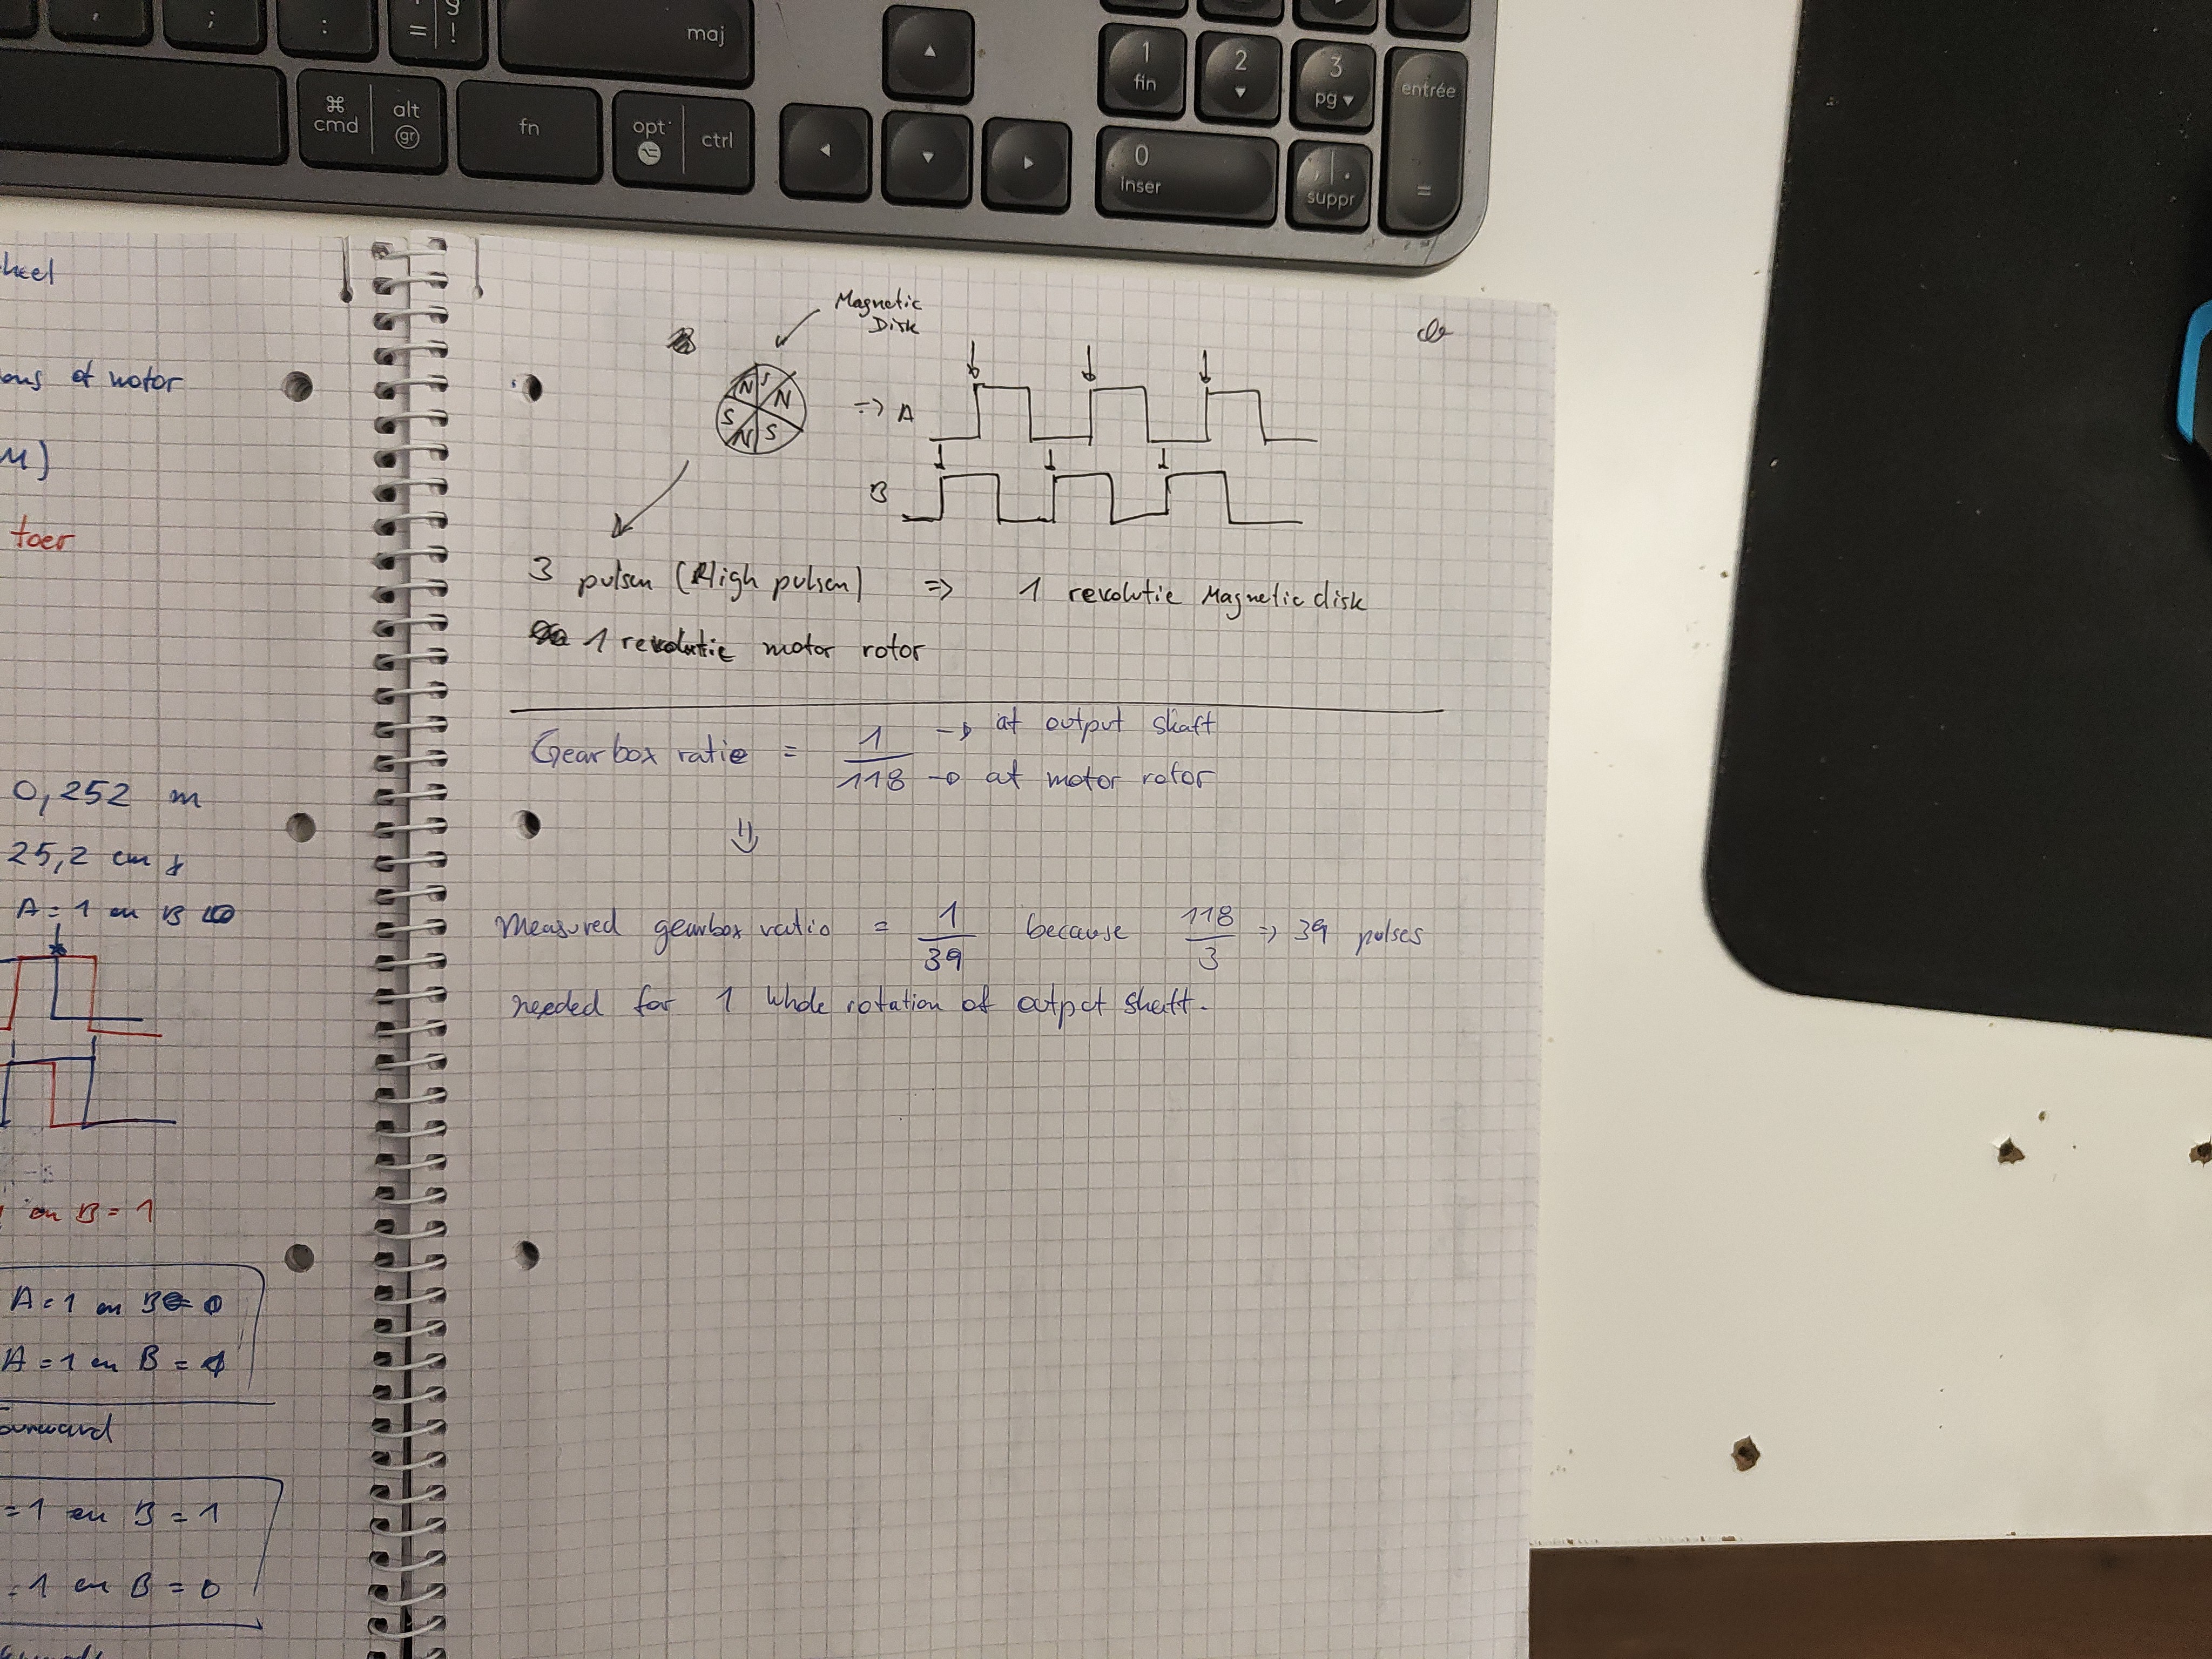 ; : = !
maj
⌘ cmd alt gr fn opt ctrl
1 fin 2 3 pg entrée
0 inser , . suppr =
heel
ons of motor
M)
toer
0,252 m
25,2 cm
A = 1 en B
en B = 1
A = 1 en B = 0
A = 1 en B = 1
forward
= 1 en B = 1
= 1 en B = 0
Magnetic
Disk
N S N S N S
=> A
B
3 pulsen (High pulsen) => 1 revolutie Magnetic disk
1 revolutie motor rotor
Gearbox ratio = 1 -> at output shaft
118 -> at motor rotor
Measured gearbox ratio = 1/39 because 118/3 => 39 pulses
needed for 1 whole rotation of output shaft.